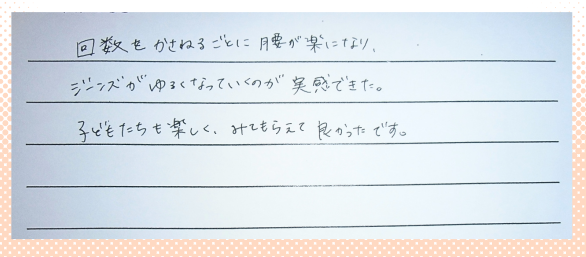 回数をかさねるごとに腰が楽になり、
ジーンズがゆるくなっていくのが実感できた。
子どもたちも楽しく、みてもらえて良かったです。